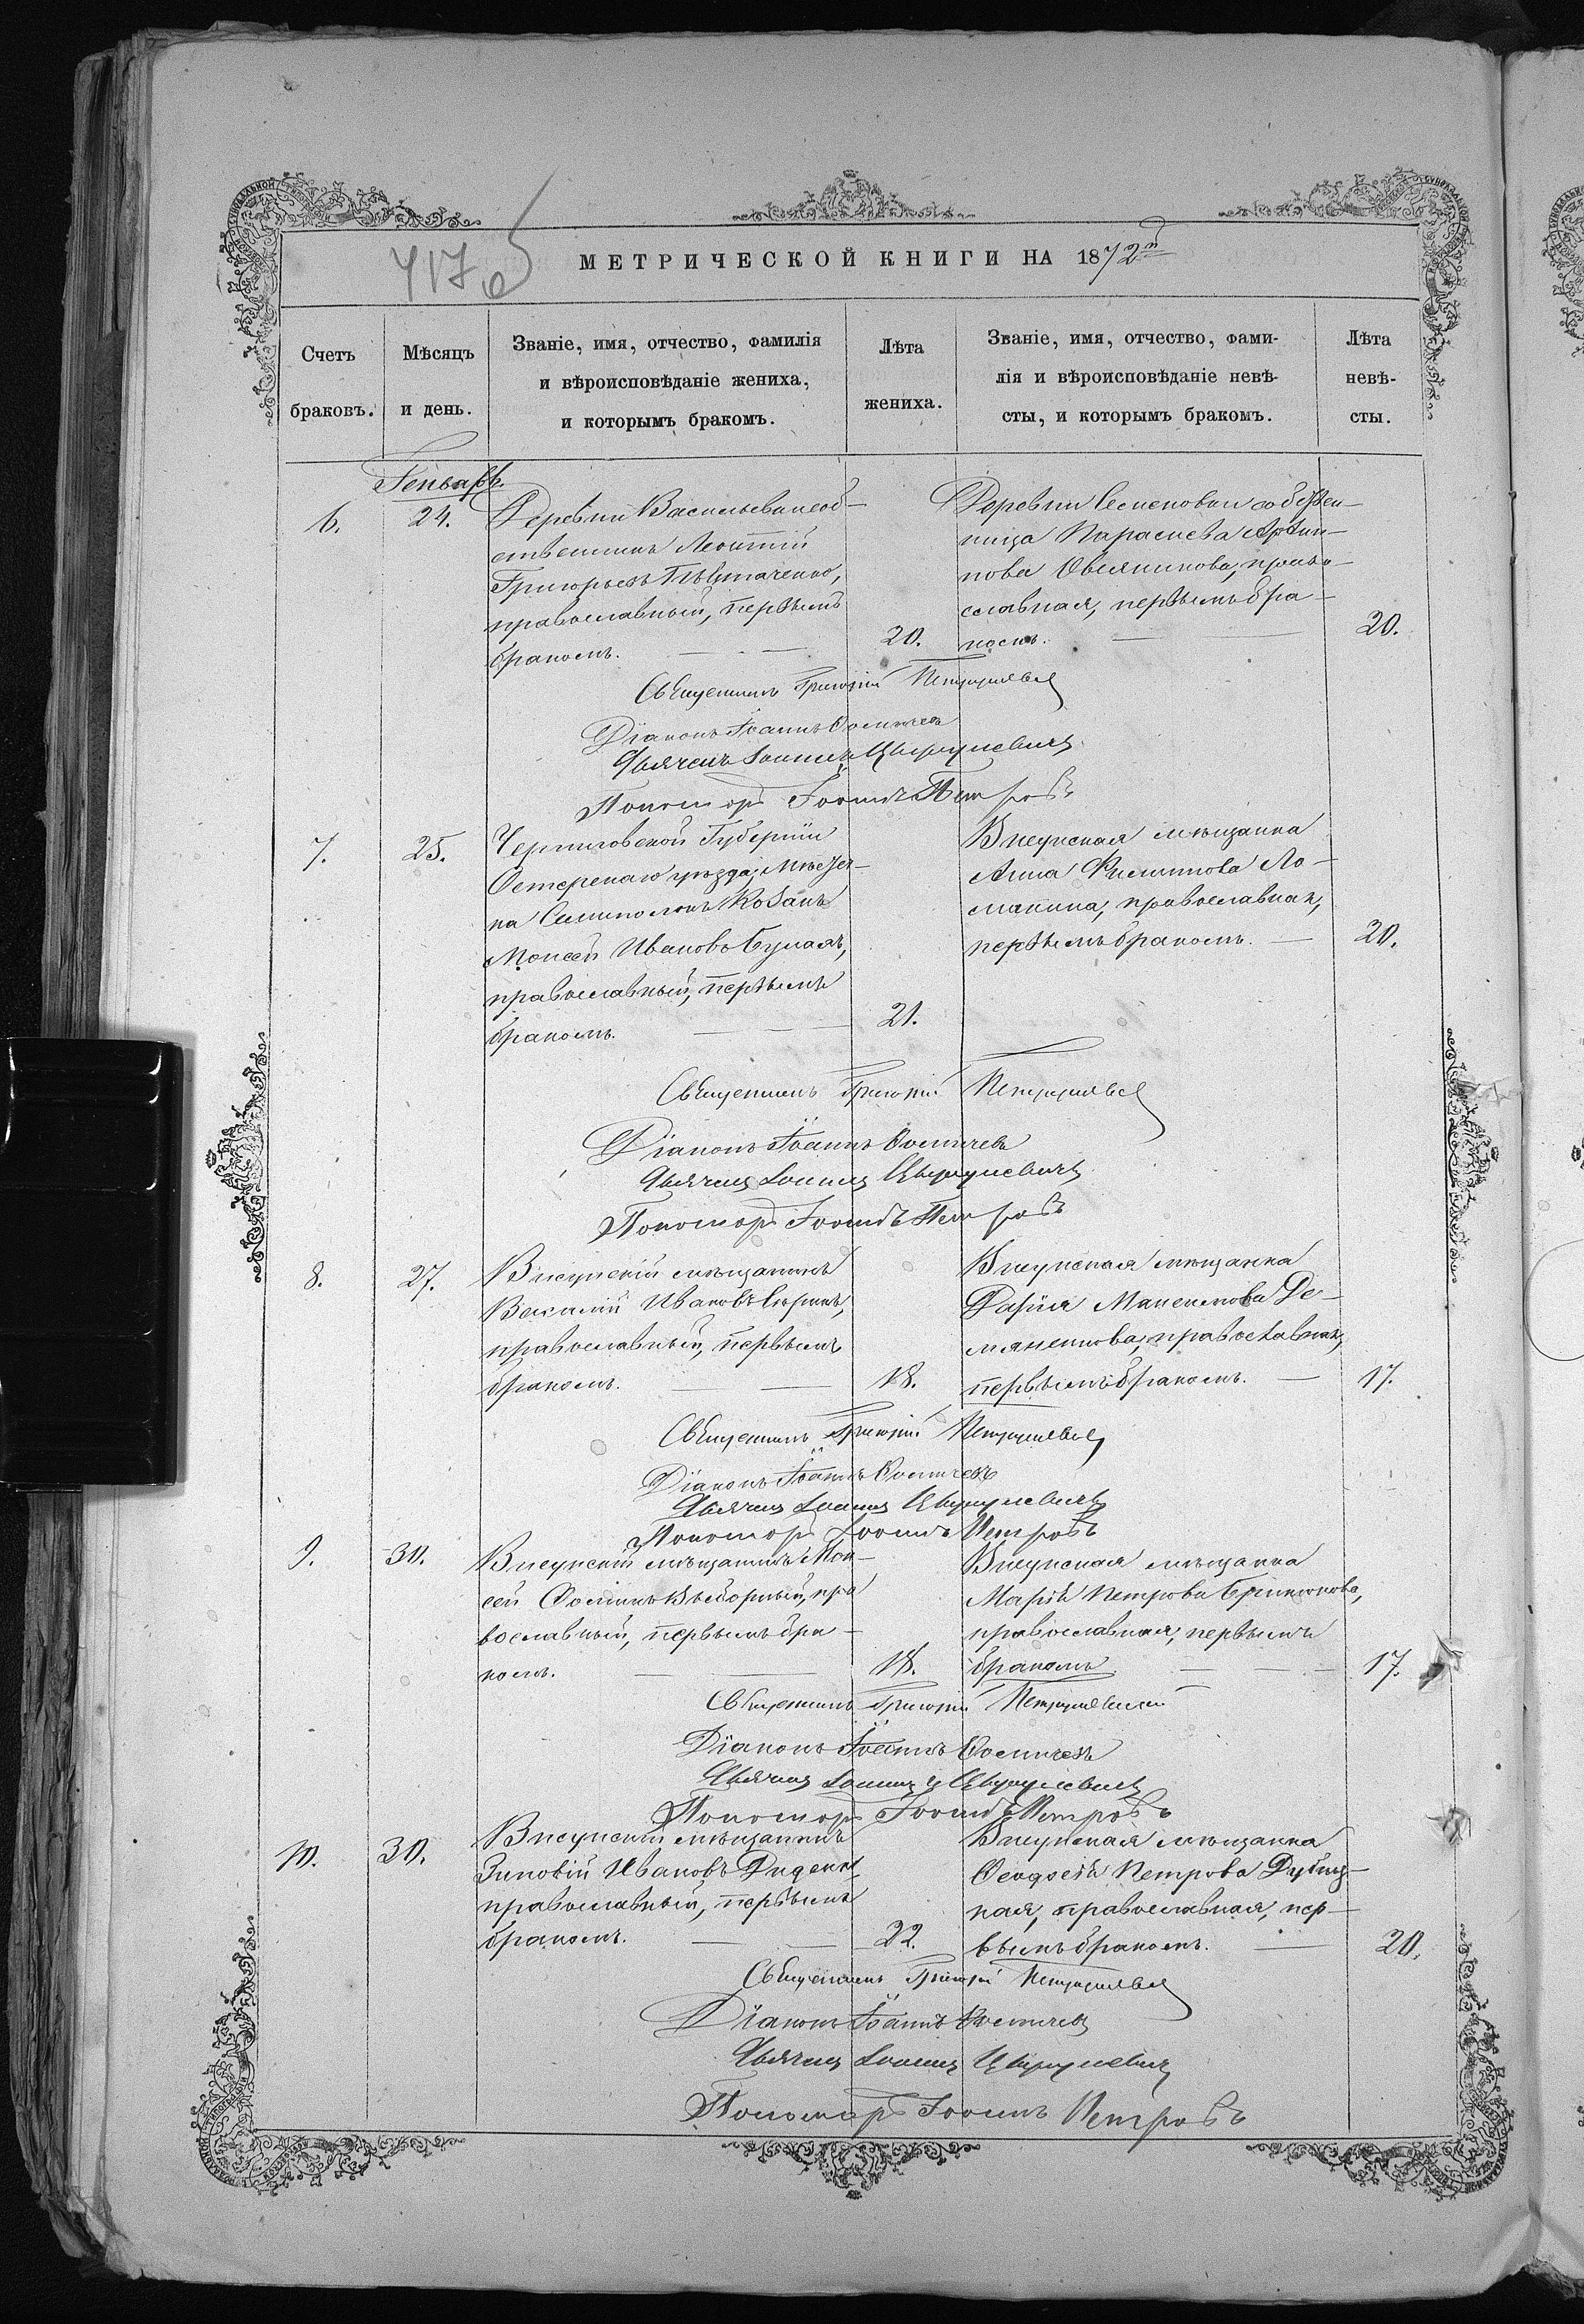 417 об
МЕТРИЧЕСКОЙ КНИГИ НА 1872й
Счетъ браковъ.
Мѣсяцъ и день.
Званіе, имя, отчество, фамилія
и вѣроисповѣданіе жениха,
и которымъ бракомъ.
Лѣта жениха.
Званіе, имя, отчество, фами-
лія и вѣроисповѣданіе невѣ-
сты, и которымъ бракомъ.
Лѣта невѣ-
сты.
Генварь
6.
24.
Деревни Васильевки соб-
ственникъ Леонтій
Григорьевъ
православный, первымъ
бракомъ.
20.
Деревни Семеновки собствен-
ница Параскева Архип-
пова Овсяникова, право-
славная, первымъ бра-
комъ.
20.
Священникъ Григорій
Діаконъ Іоаннъ
Дьячекъ Іоаннъ
Пономарь Іоаннъ Петровъ
7.
25.
Черниговской Губерніи
Остерскаго уѣзда, мѣстеч-
ка Семиполокъ Козакъ
Моисей Ивановъ
православный, первымъ
бракомъ.
21.
Висунская мѣщанка
Анна Филиппова Ло-
макина, православная,
первымъ бракомъ.
20.
Священникъ Григорій
Діаконъ Іоаннъ
Дьячекъ Іоаннъ
Пономарь Іоаннъ Петровъ
8.
27.
Висунскій мѣщанинъ
Василій Ивановъ
православный, первымъ
бракомъ.
18.
Висунская мѣщанка
Дарія Максимова Де-
мяненкова, православная,
первымъ бракомъ.
17.
Священникъ Григорій
Діаконъ Іоаннъ
Дьячекъ Іоаннъ
Пономарь Іоаннъ Петровъ
9.
30.
Висунскій мѣщанинъ Мои-
сей Фоминъ Выборный, пра
вославный, первымъ бра-
комъ.
18.
Висунская мѣщанка
Марія Петрова
православная, первымъ
бракомъ
17.
Священникъ Григорій
Діаконъ Іоаннъ
Дьячекъ Іоаннъ
Пономарь Іоаннъ Петровъ
10.
30.
Висунскій мѣщанинъ
Зиновій Ивановъ Диденко
православный, первымъ
бракомъ.
22.
Висунская мѣщанка
Феодосія Петрова
православная, пер-
вымъ бракомъ.
20.
Священникъ Григорій
Діаконъ Іоаннъ
Дьячекъ Іоаннъ
Пономарь Іоаннъ Петровъ